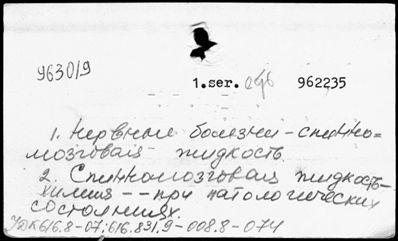 9630/9
1.ser. 962235
1. Нервные болезни - спинно-
мозговая жидкость.
2. Спинномозговая жидкость-
химия -- при патологических
состояниях.
УДК 616.8-07; 616.831.9-008.8-074